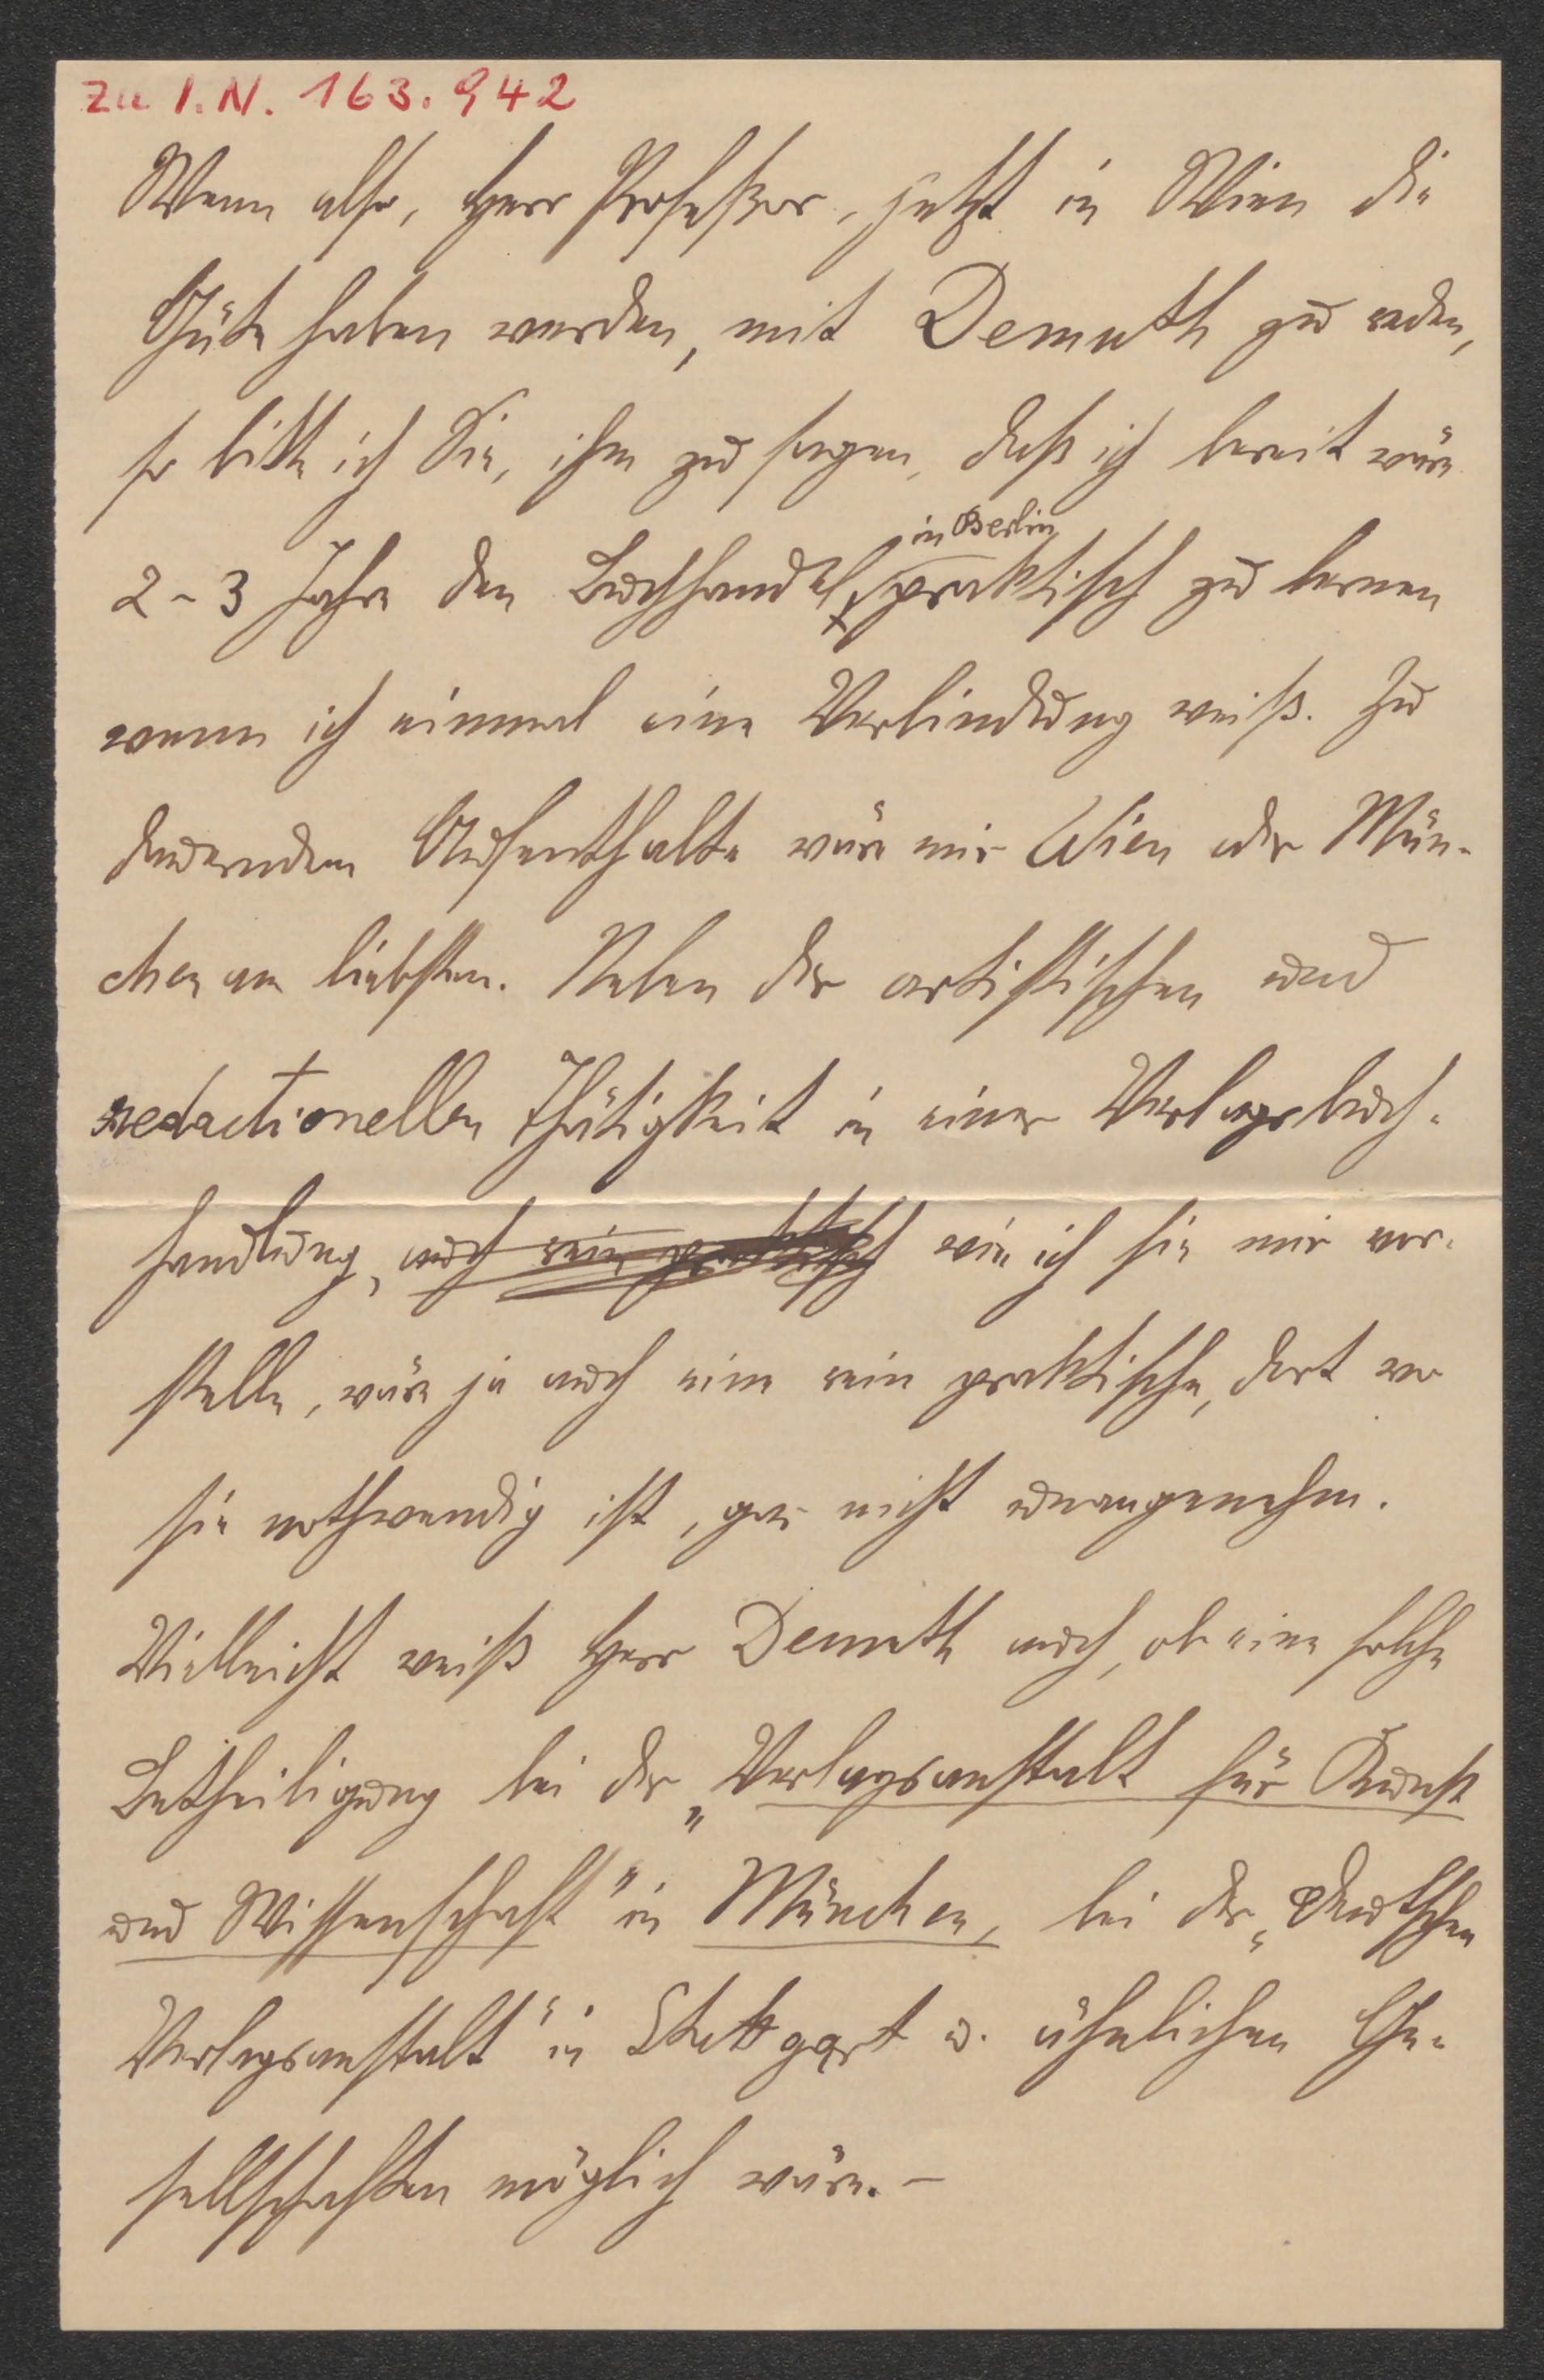 zu I.N. 163.942
Wenn also, Herr Profeßor, jetzt in Wien die
Güte haben werden, mit Demuth zu reden,
so bitte ich Sie, ihm zu sagen, daß ich bereit wäre
in Berlin
2-3 Jahre den Buchhandel praktisch zu lernen
wenn ich einmal eine Verbindung weiß. Zu
dauerndem Aufenthalte wäre mir Wien oder Mün-
chen am liebsten. Neben der artistischen und
redactionellen Thätigkeit in einer Verlagsbuch-
handlung, auch rein praktisch wie ich sie mir vor-
stelle, wäre ja auch eine rein praktische, dort wo
sie nothwendig ist, gar nicht unangenehm.
Vielleicht weiß Herr Demuth auch, ob eine solche
Betheiligung bei der „Verlagsanstalt für Kunst
und Wissenschaft" in München, bei der „Deutschen
Verlagsanstalt" in Stuttgart u. ähnlichen Ge-
sellschaften möglich wäre. –